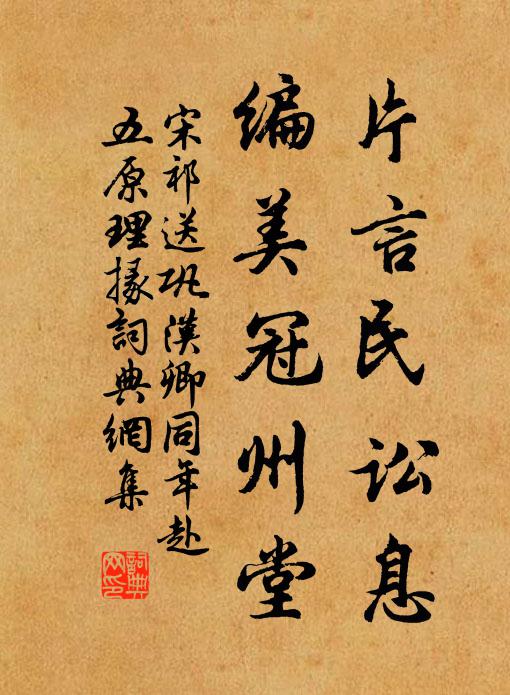 片言民讼息
编美冠州堂
宋祁送巩漢卿同年赴
五原理掾詞典網集
詞典
网印